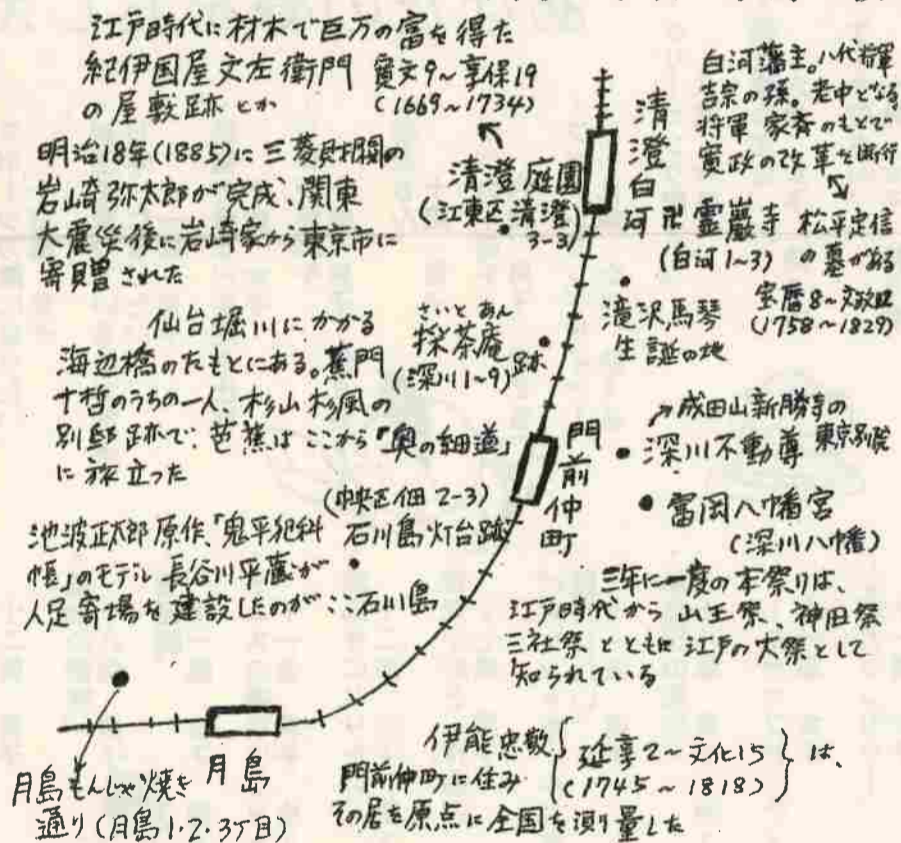 江戸時代に材木で巨万の富を得た
紀伊国屋文左衛門 寛文9~享保19
の屋敷跡とか (1669~1734)
明治18年(1885)に三菱財閥の
岩崎弥太郎が完成、関東
大震災後に岩崎家から東京市に
寄贈された
清澄庭園
(江東区清澄
3-3)
清澄白河
白河藩主。八代将軍
吉宗の孫。老中となる
将軍 家斉のもとで
寛政の改革を断行
卍 霊巌寺 松平定信
(白河1~3) の墓がある
宝暦8~文政12
(1758~1829)
滝沢馬琴
生誕の地
仙台堀川にかかる
海辺橋のたもとにある。蕉門
十哲のうちの一人、杉山杉風の
別邸跡で、芭蕉はここから「奥の細道」
に旅立った
さいとあん
採茶庵跡
(深川1~9)
門前仲町
成田山新勝寺の
深川不動尊 東京別院
富岡八幡宮
(深川八幡)
三年に一度の本祭りは、
江戸時代から山王祭、神田祭
三社祭とともに江戸の大祭として
知られている
(中央区佃2-3)
石川島灯台跡
池波正太郎原作、「鬼平犯科
帳」のモデル 長谷川平蔵が
人足寄場を建設したのがここ石川島
月島
月島もんじゃ焼き
通り(月島1・2・3丁目)
伊能忠敬{延享2~文化15}は、
(1745~1818)
門前仲町に住み
その居を原点に全国を測り量した